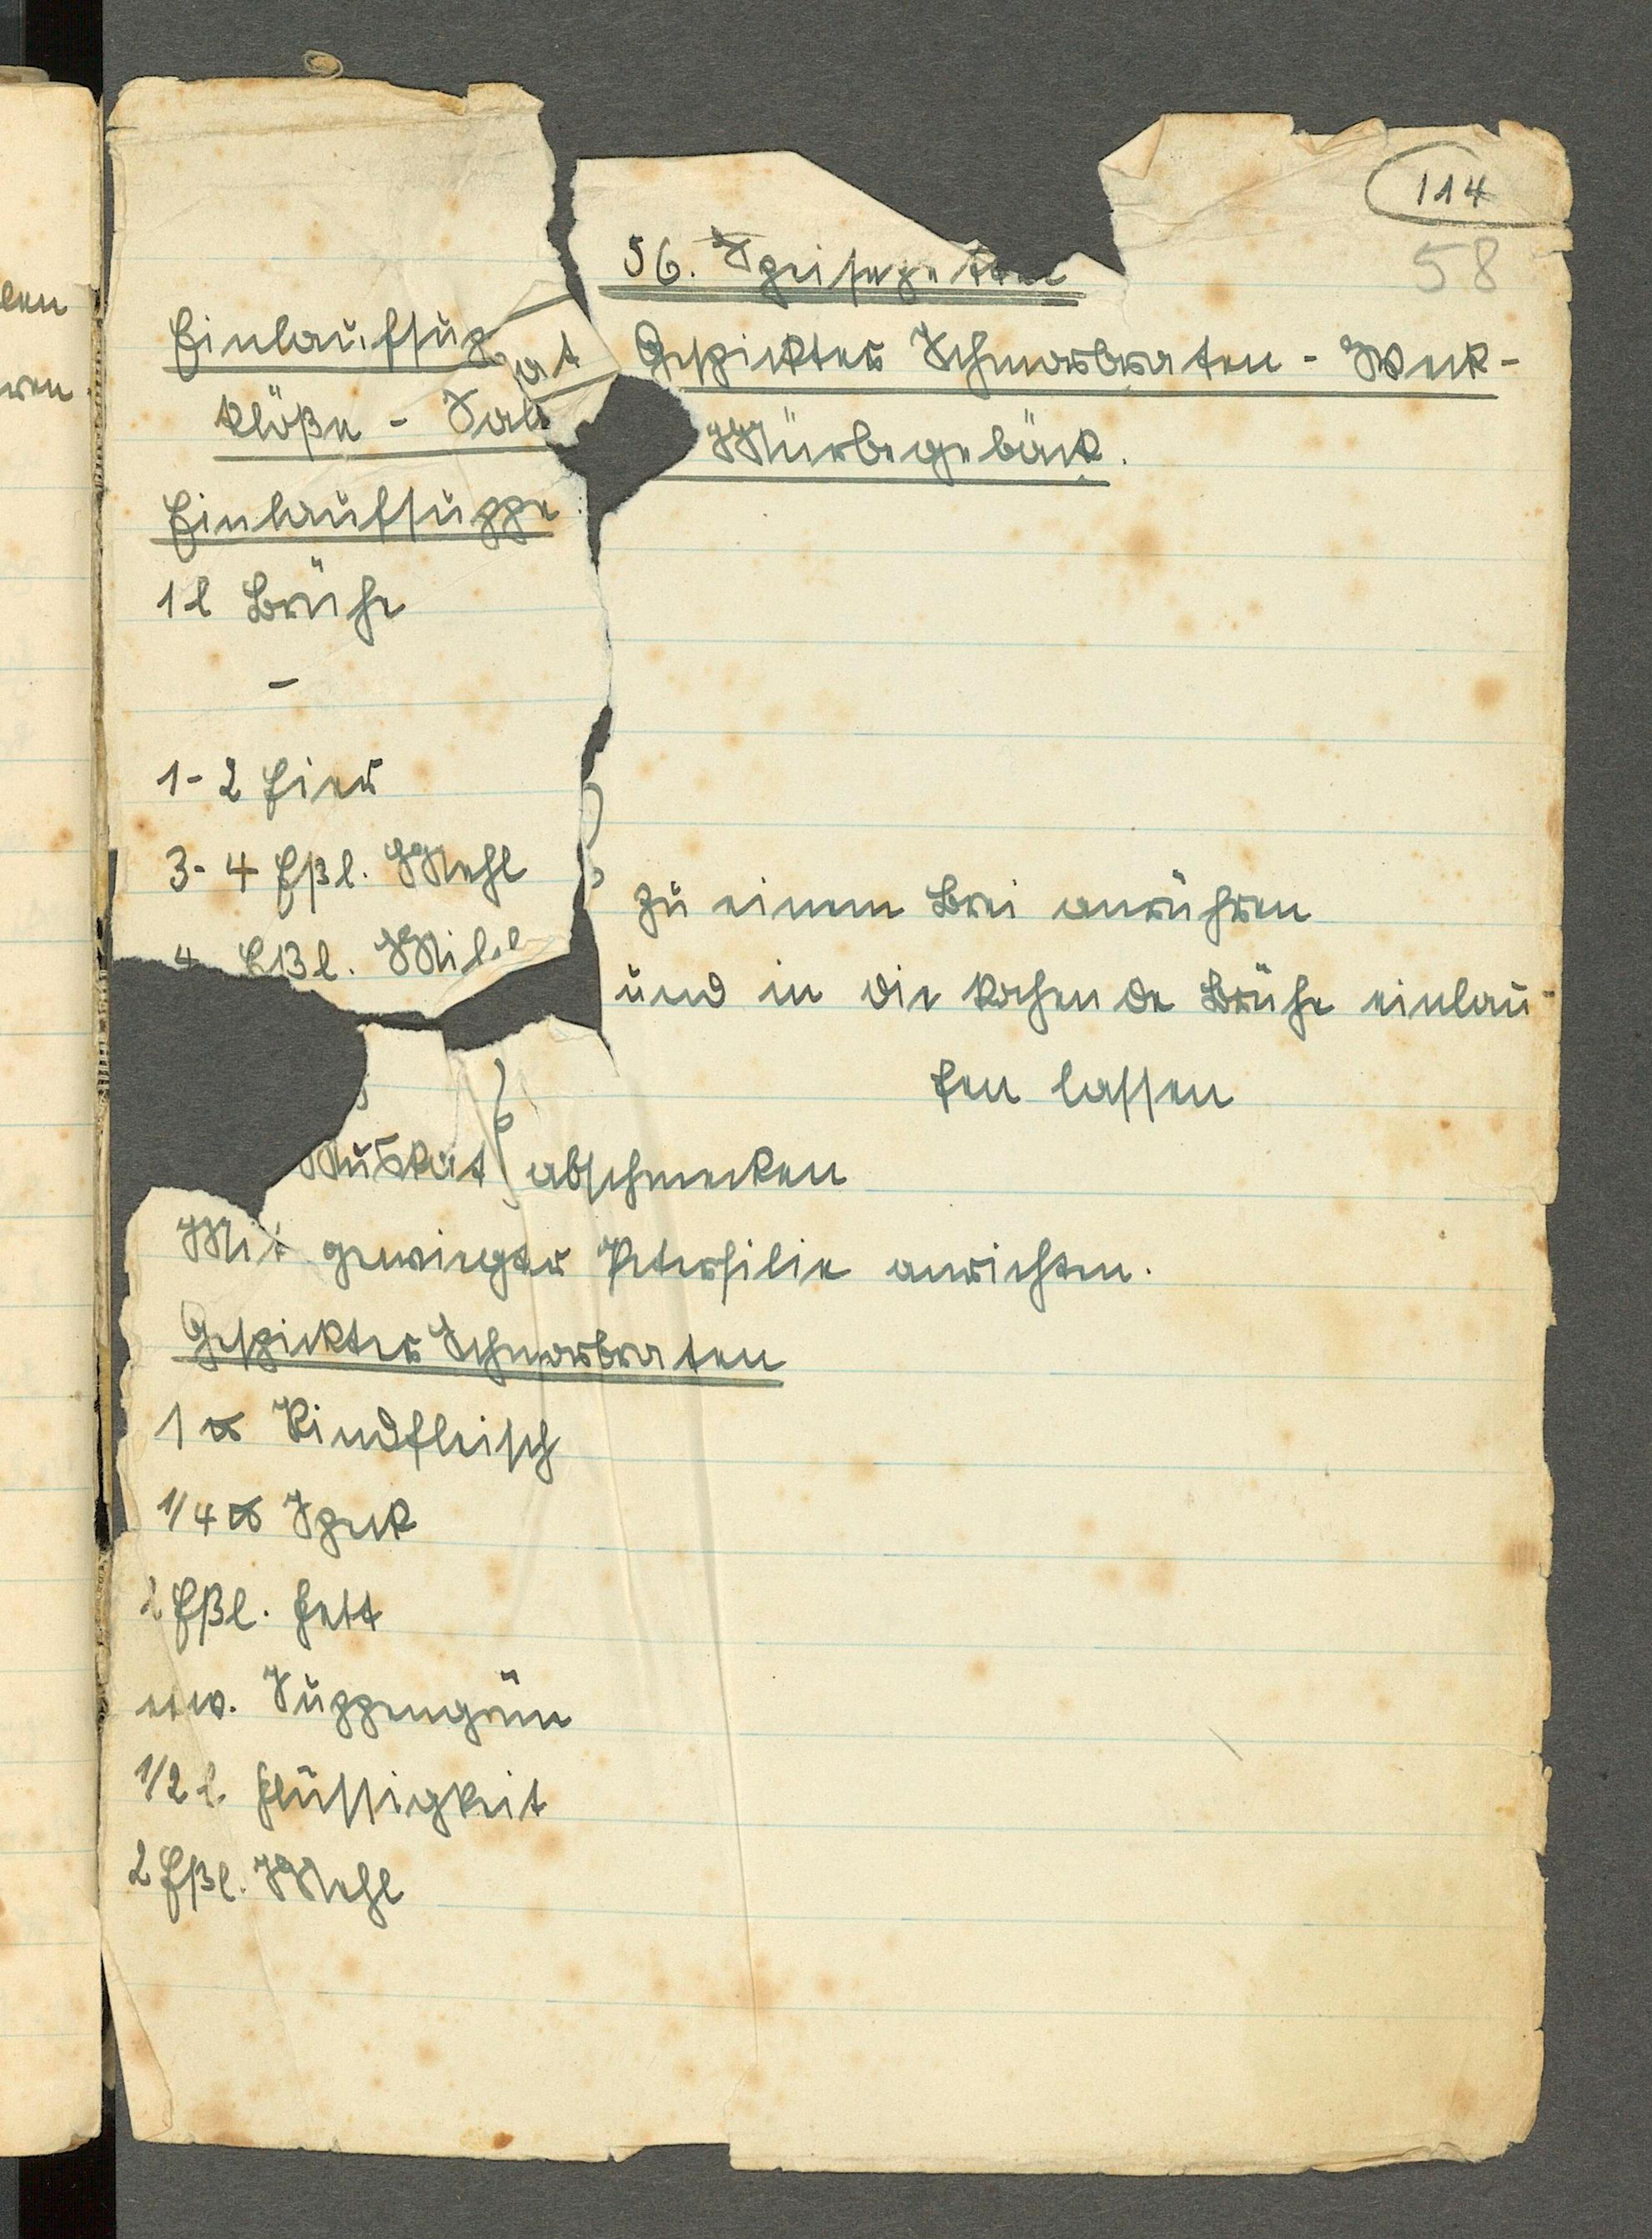 114
58
56. Speisezettel
Einlaufsup
Gespickter Schmorbraten - Weck-
klöße - Salat
Mürbegebäck.
Einlaufsuppe
1 l Brühe
-
1-2 Eier
3-4 Eßl. Mehl
zu einem Brei anrühren
4 Eßl. Milch
und in die kochende Brühe einlau-
fen lassen
Muskat abschmecken
Mit gewiegter Petersilie anrichten.
Gespickter Schmorbraten
1 ℔ Rindfleisch
1/4 ℔ Speck
2 Eßl. Fett
etw. Suppengrün
1/2 l. Flüssigkeit
2 Eßl. Mehl